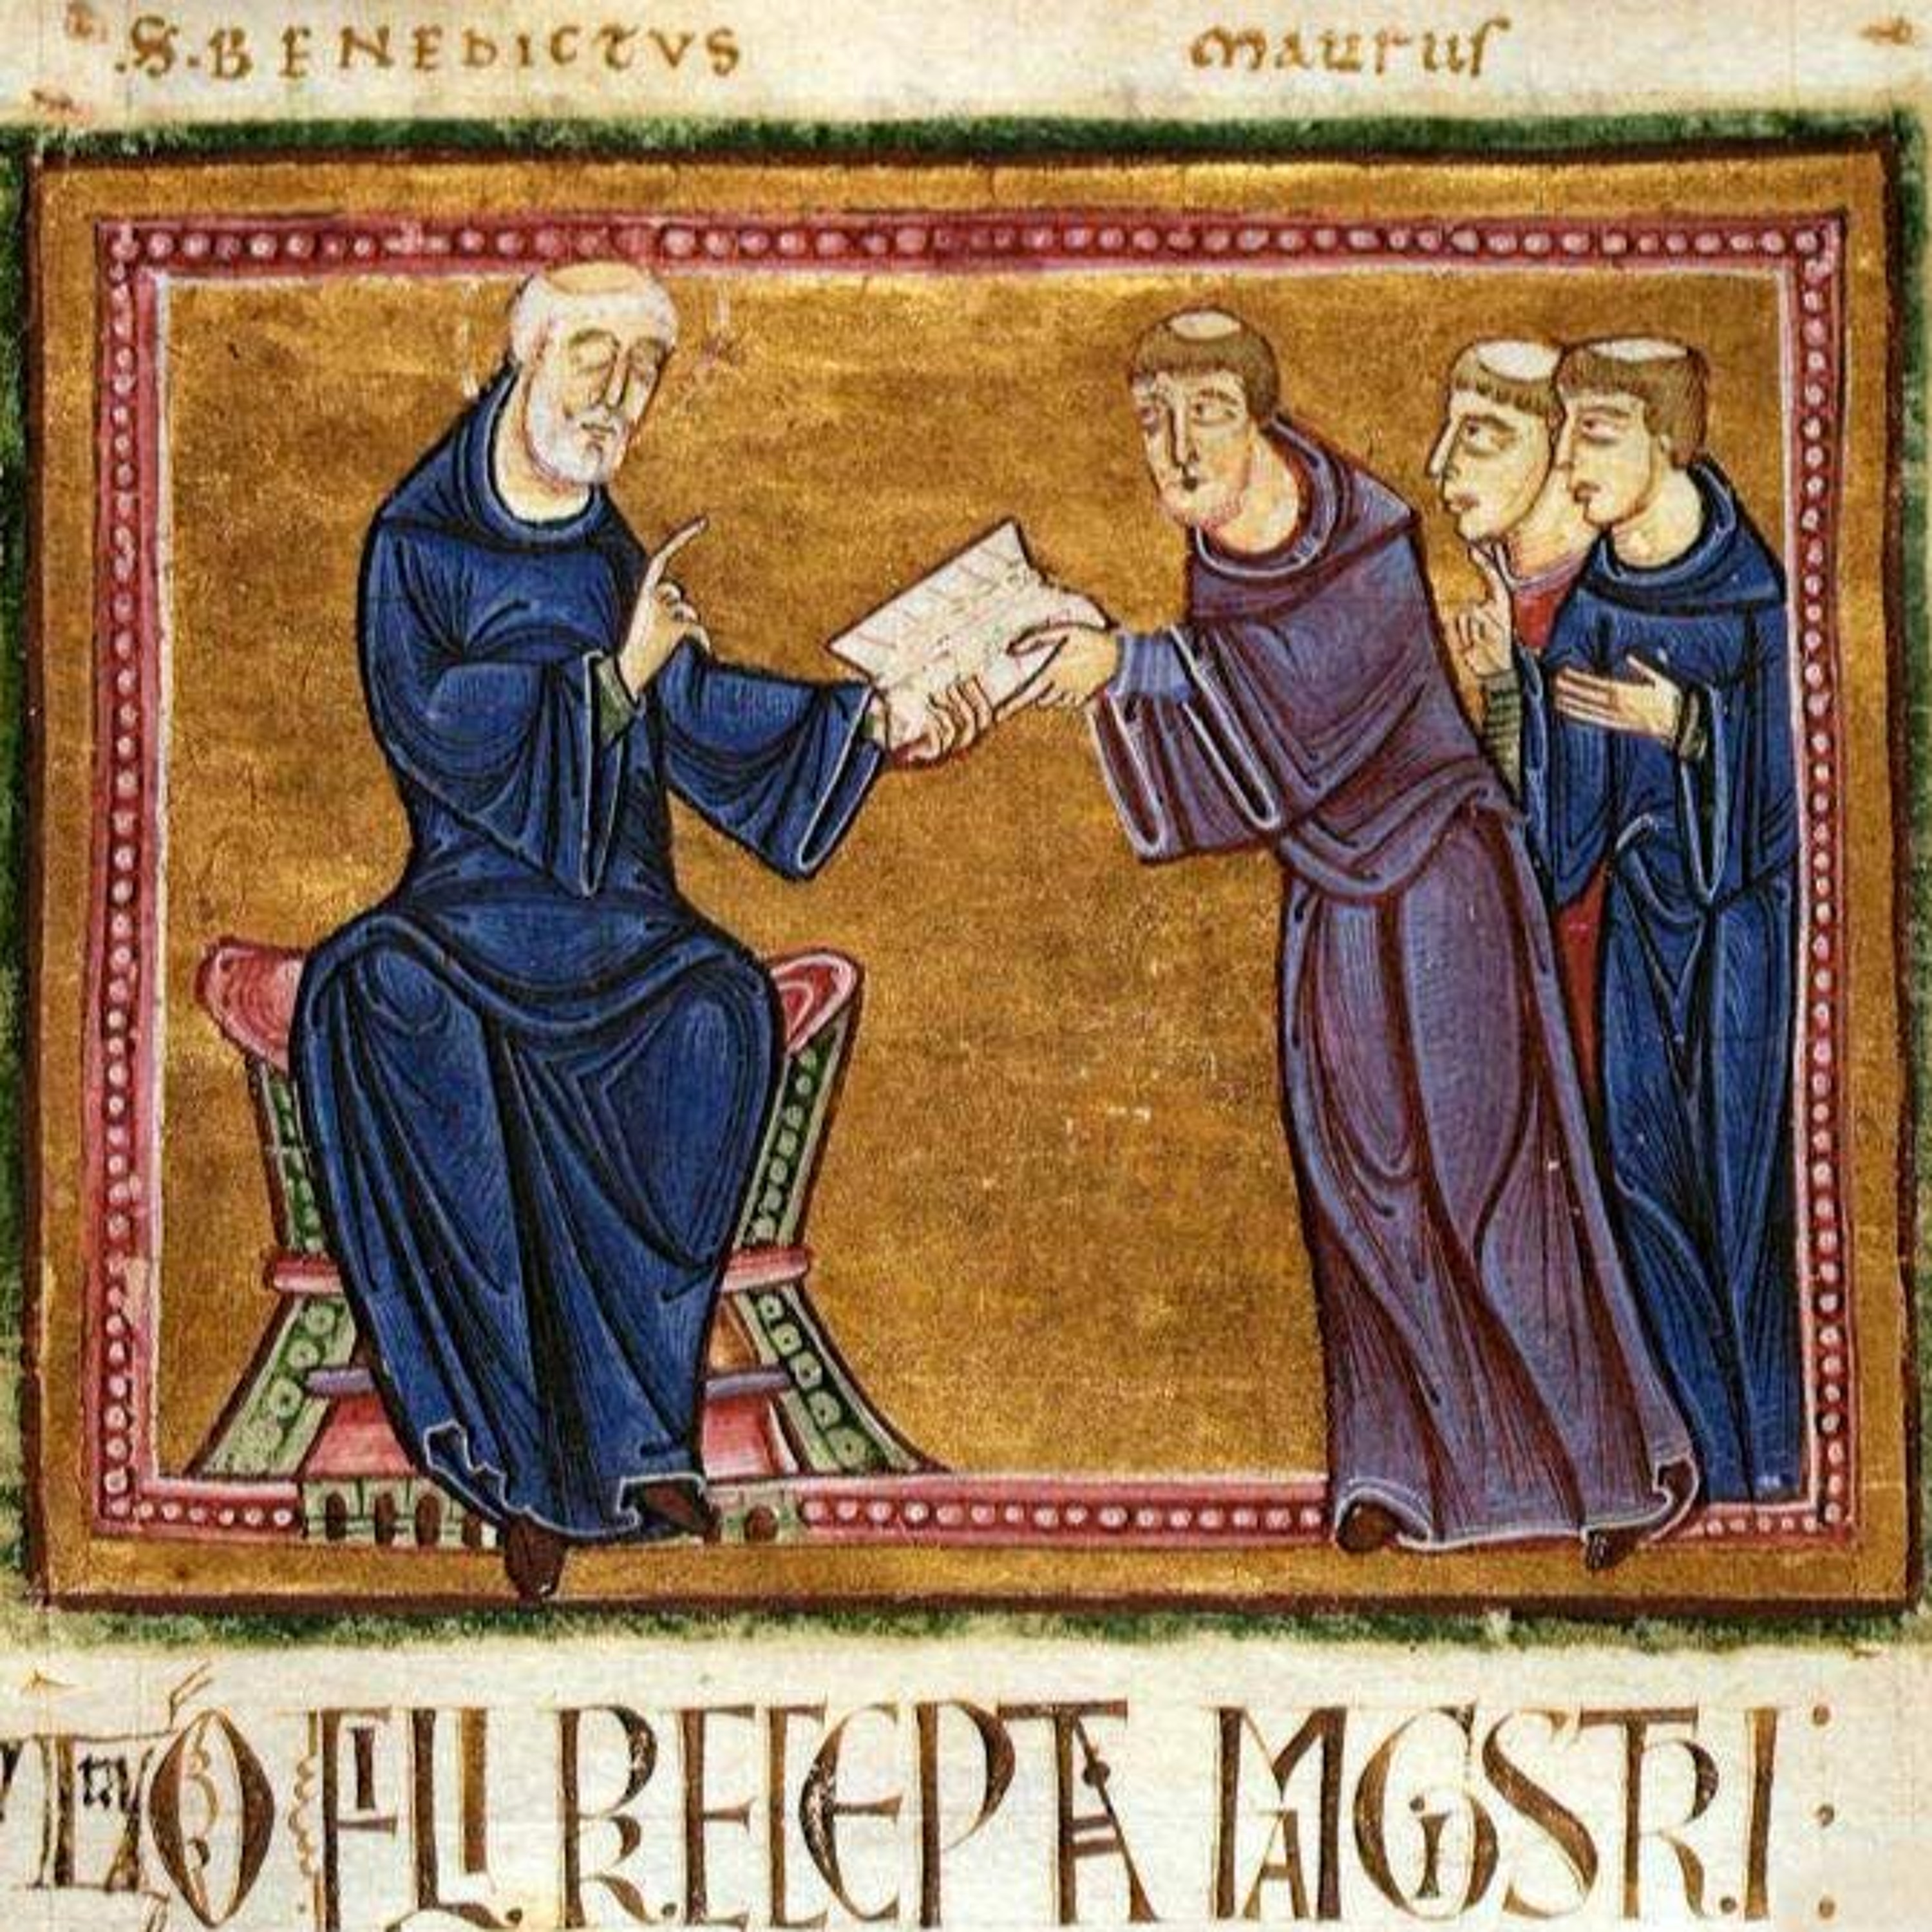 .S. BENEDICTVS
maurus
O FILI PRECEPTA MAGISTRI: